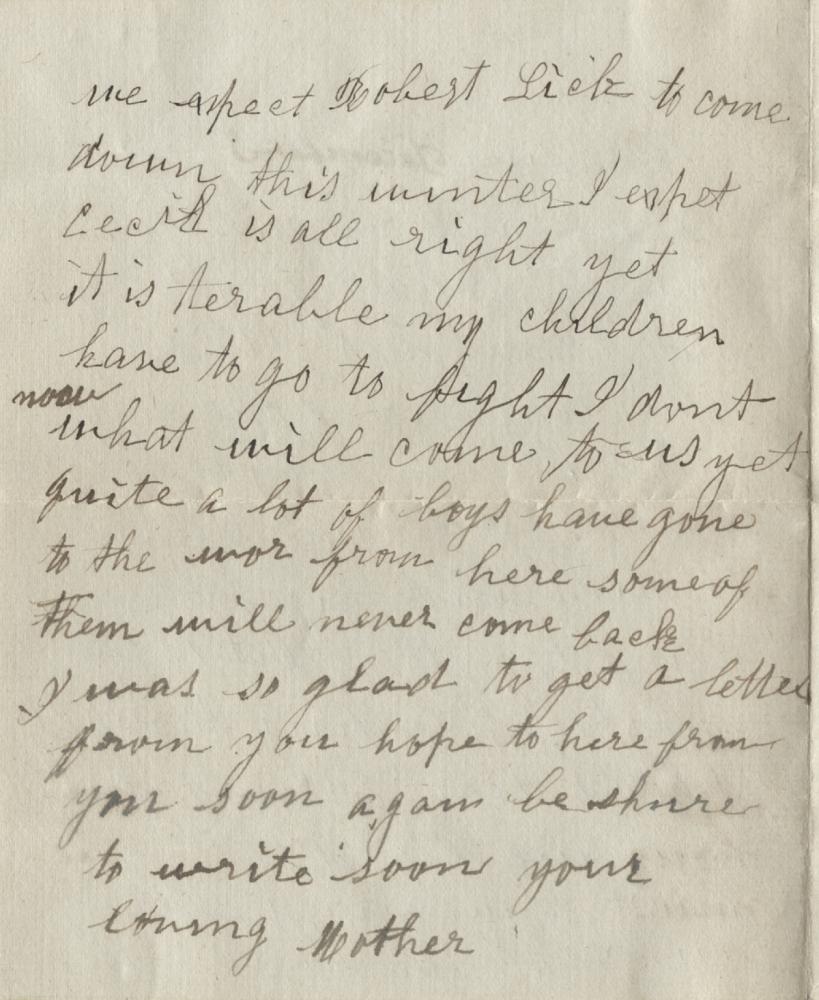 we expect Robert Lick to come
down this winter I expet
Cecil is all right yet
it is terable my children
have to go to fight I dont
now
what will come to us yet
quite a lot of boys have gone
to the wor from here some of
them will never come back
I was so glad to get a letter
from you hope to here from
you soon again be shure
to write soon your
loving Mother